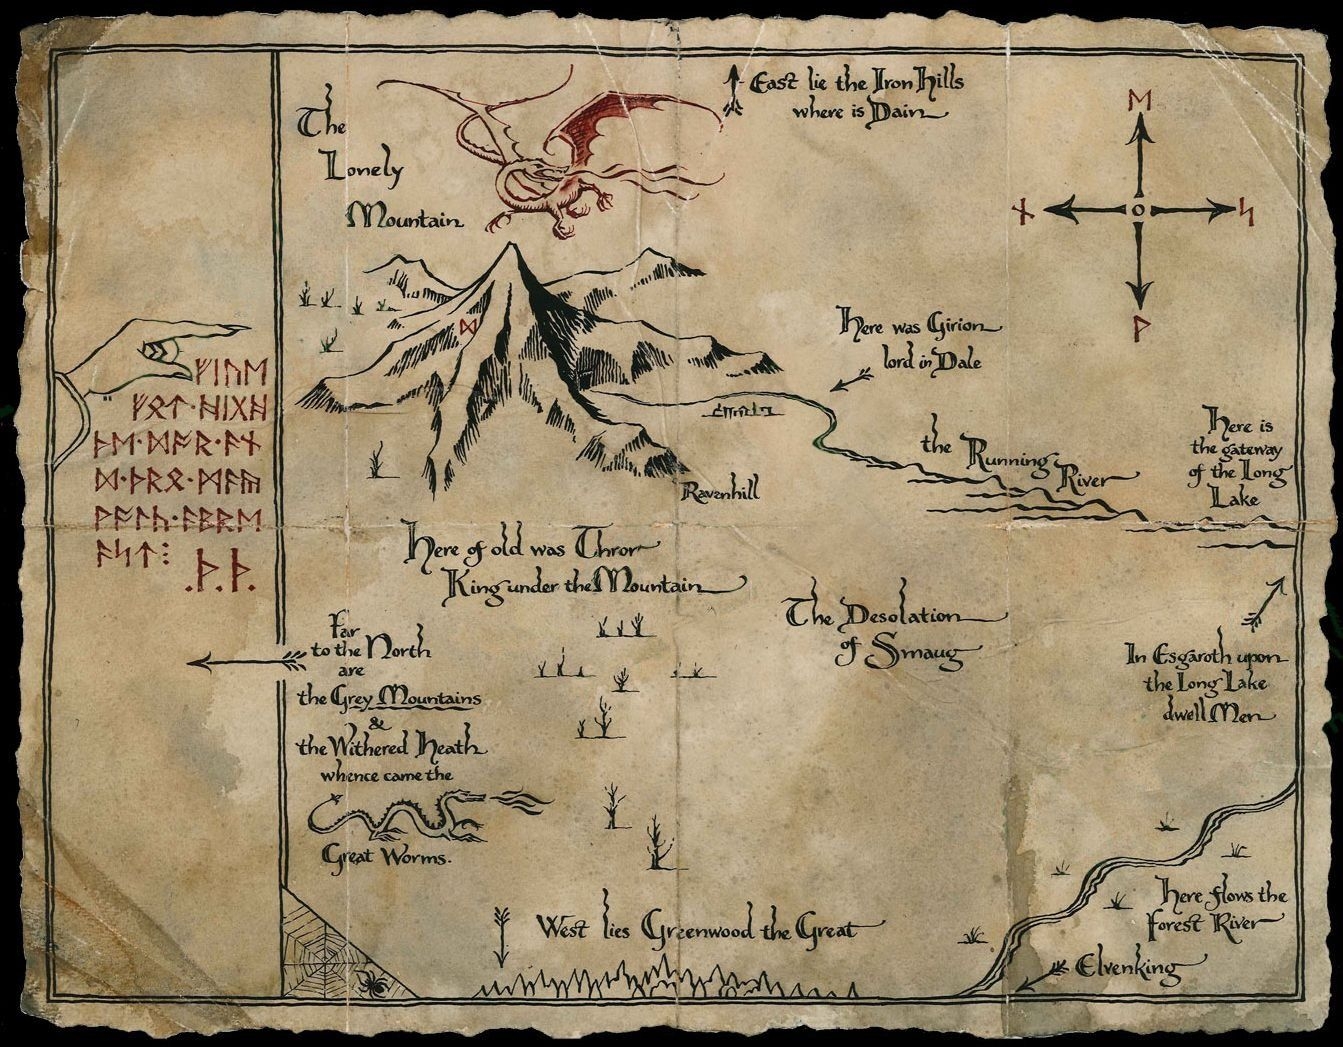 The
Lonely
Mountain
East lie the Iron Hills
where is Dain
ᛖ
ᚾ
ᛋ
ᚹ
ᛞ
Here was Girion
lord in Dale
ᚠᛁᚢᛖ
ᚠᛟᛏ·ᚻᛁᚷᚻ
ᚦᛖ·ᛞᚩᚱ·ᚪᚾ
ᛞ·ᚦᚱᛟ·ᛗᚪᚣ
ᚹᚪᛚᚳ·ᚪᛒᚱᛖ
ᚪᛋᛏ⁝
.ᚦ.ᚦ.
the Running
River
Here is
the gateway
of the Long
Lake
Ravenhill
Here of old was Thror
King under the Mountain
The Desolation
of Smaug
Far
to the North
are
the Grey Mountains
&
the Withered Heath
whence came the
Great Worms.
In Esgaroth upon
the Long Lake
dwell Men
West lies Greenwood the Great
Here flows the
Forest River
Elvenking